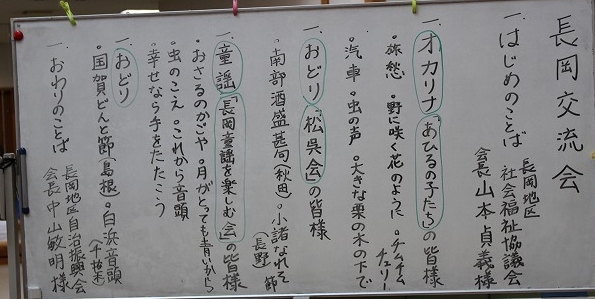 長岡交流会
一.はじめのことば
長岡地区
社会福祉協議会
会長 山本貞義様
一.オカリナ「あひるの子たち」の皆様
・旅愁 ・野に咲く花のように ・チムチム
チェリー
・汽車 ・虫の声 ・大きな栗の木の下で
一.おどり「松呉会」の皆様
・南部酒盛甚句(秋田) ・小諸なれそ節
(長野)
一.童謡「長岡童謡を楽しむ会」の皆様
・おさるのかごや ・月がとっても青いから
・虫のこえ ・これから音頭
・幸せなら手をたたこう
一.おどり
・国賀どんと節(島根) ・白浜音頭
(千葉)
一.おわりのことば
長岡地区自治振興会
会長 中山敏明様